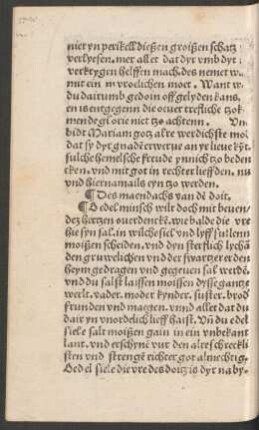 niet yn perikell dießen groißen schatz
verlyesen. mer allet dat dyr vmb dyt
verkrygen helffen mach. des nemet w
mit ein m vroelichen moet. Want w
du dairumb gedoin off gelyden kans.
en is entgegenn die ouertrefliche zok
mende glorie niet zo achtenn. Vn
bidt Mariam gotz alre werdichste mo
dat sy dyr gnade erwerue an yr lieue kyt.
sulche hemelsche freude ynnich zo beden
cken. vnd mit got in rechter lieffden. nu
vnd hiernamails eyn zo werden.
¶ Des maendachs van dē doit.
¶ O edel minsch wilt doch mit beuen
dez hertzen ouerdencke. wie balde die vre
hie syn sal. in wilche siel vnd lyff sullenn
moißen scheiden. vnd dyn sterflich lychā
den gruwelichen vnd der swartzer erden
heym gedragen vnd gegeuen sal werdē.
vnd du salst laissen moissen dysse gantze
werlt. vader. moder kynder. suster. brod
frunden vnd maegen. vnnd allet dat du
dair yn vnordelich lieff haist. Vn̄ du edel
siele salt moißen gain in ein vnbekant
lant. vnd erschynē vur den alreschreckli
sten vnd strengē richter got almechtig.
O edel siele die vre des doitz is dyr naby.